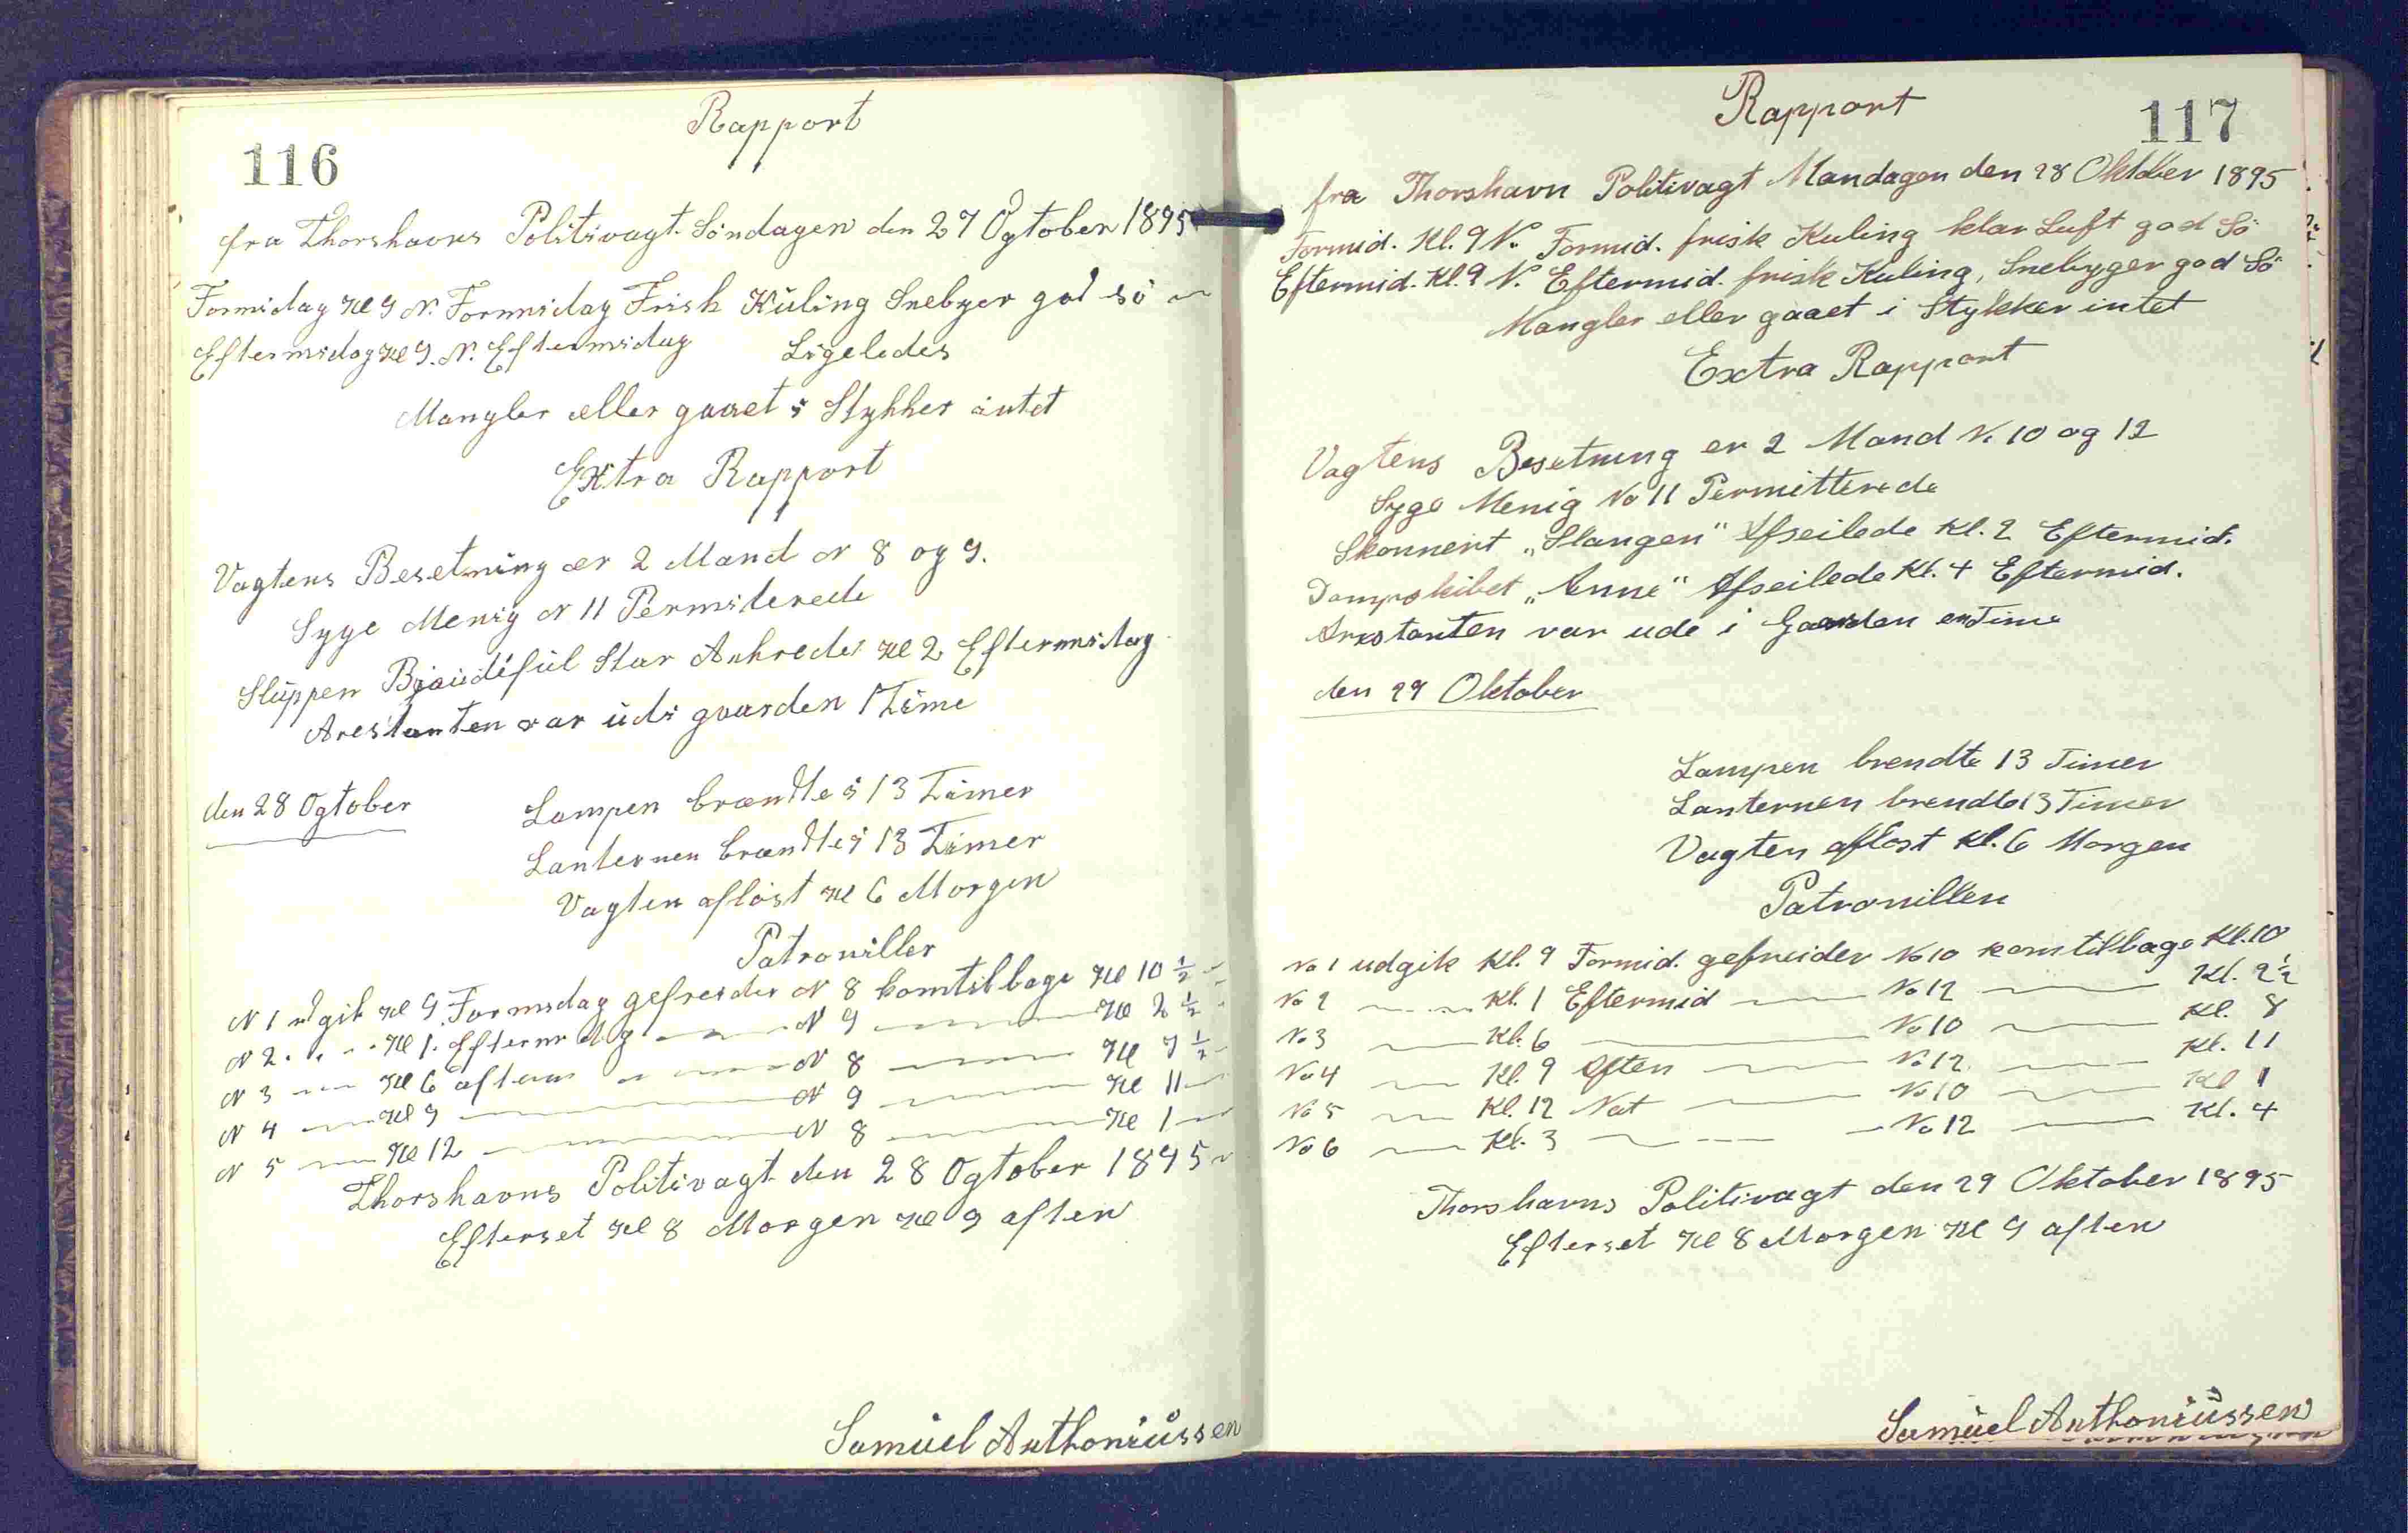 116
Rapport
fra Thorshavns Politivagt Söndagen den 27 Ogtober 1895
Formidag Kl 9 N. Formidag Frisk Kuling Snebyer god sö
Eftermidag Kl 9. N. Eftermidag Ligeledes
Mangler eller gaaet i Stykker intet
Extra Rapport
Vagtens Besetning er 2 Mand N 8 og 9.
Syge Menig N 11 Permiterede
Sluppen Bjaudiful Star Ankrede Kl 2 Eftermidag
Arestanten var udi gaarden 1 Time
den 28 Ogtober
Lampen brændte i 13 Timer
Lanternen brændte i 13 Timer
Vagten aflöst Kl 6 Morgen
Patrouiller
N 1 udgik Kl 9 Formdag gefreider N 8 komtilbage Kl 10 1/2
N 2 Kl 1. Eftermdag N 9 Kl 2 1/2
N 3 Kl 6 aften N 8 Kl 7 1/2
N 4 Kl 9 N 9 Kl 11
N 5 Kl 12 N 8 Kl 1
Thorshavns Politivagt den 28 Ogtober 1895
Efterset Kl 8 Morgen Kl 9 aften
Samuel Anthoniussen
117
Rapport
fra Thorshavn Politivagt Mandagen den 28 Oktober 1895
Formid. Kl. 9 N. Formid. frisk Kuling klar Luft god Sö
Eftermid. Kl. 9 N. Eftermid. frisk Kuling, Snebyger god Sö
Mangler eller gaaet i Stykker intet
Extra Rapport
Vagtens Besetning er 2 Mand N. 10 og 12
Syge Menig No 11 Permitterede
Skonnert „Slangen" Afseilede Kl. 2 Eftermid.
Dampskibet „Anne" Afseilede Kl. 4 Eftermid.
Arestanten var ude i Gaarden en Time
den 29 Oktober
Lampen brendte 13 Timer
Lanternen brendte 13 Timer
Vagten aflöst Kl. 6 Morgen
Patrouillen
No 1 udgik Kl. 9 Formid. gefreider No 10 kom tilbage Kl. 10
No 2 Kl. 1 Eftermid No 12 Kl. 2 1/2
No 3 Kl. 6 No 10 Kl. 8
No 4 Kl. 9 Aften No 12 Kl. 11
No 5 Kl. 12 Nat No 10 Kl 1
No 6 Kl. 3 No 12 Kl. 4
Thorshavns Politivagt den 29 Oktober 1895
Efterset Kl 8 Morgen Kl 9 aften
Samuel Anthoniussen